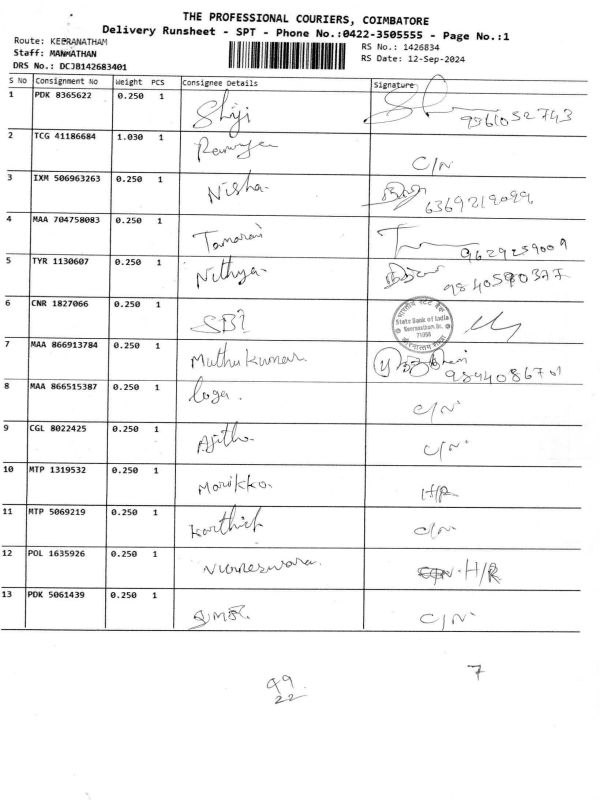 THE PROFESSIONAL COURIERS, COIMBATORE
Delivery Runsheet - SPT - Phone No.:0422-3505555 - Page No.:1
Route: KEERANATHAM
RS No.: 1426834
Staff: MANMATHAN
RS Date: 12-Sep-2024
DRS No.: DCJB142683401
S No Consignment No Weight PCS Consignee Details Signature
1 PDK 8365622 0.250 1 Shiji
2 TCG 41186684 1.030 1 Ramya C/N
3 IXM 506963263 0.250 1 Nisha. 6369219099
4 MAA 704758083 0.250 1 Tamarai 9629259009
5 TYR 1130607 0.250 1 Nithya. 9840590377
6 CNR 1827066 0.250 1 SBI State Bank of India
7 MAA 866913784 0.250 1 Muthukumar. 9894086701
8 MAA 866515387 0.250 1 Loga. C/N
9 CGL 8022425 0.250 1 Ajitha. C/N
10 MTP 1319532 0.250 1 Marikko. H/R
11 MTP 5069219 0.250 1 Karthick C/N
12 POL 1635926 0.250 1 H/R
13 PDK 5061439 0.250 1 C/N
7
99
22